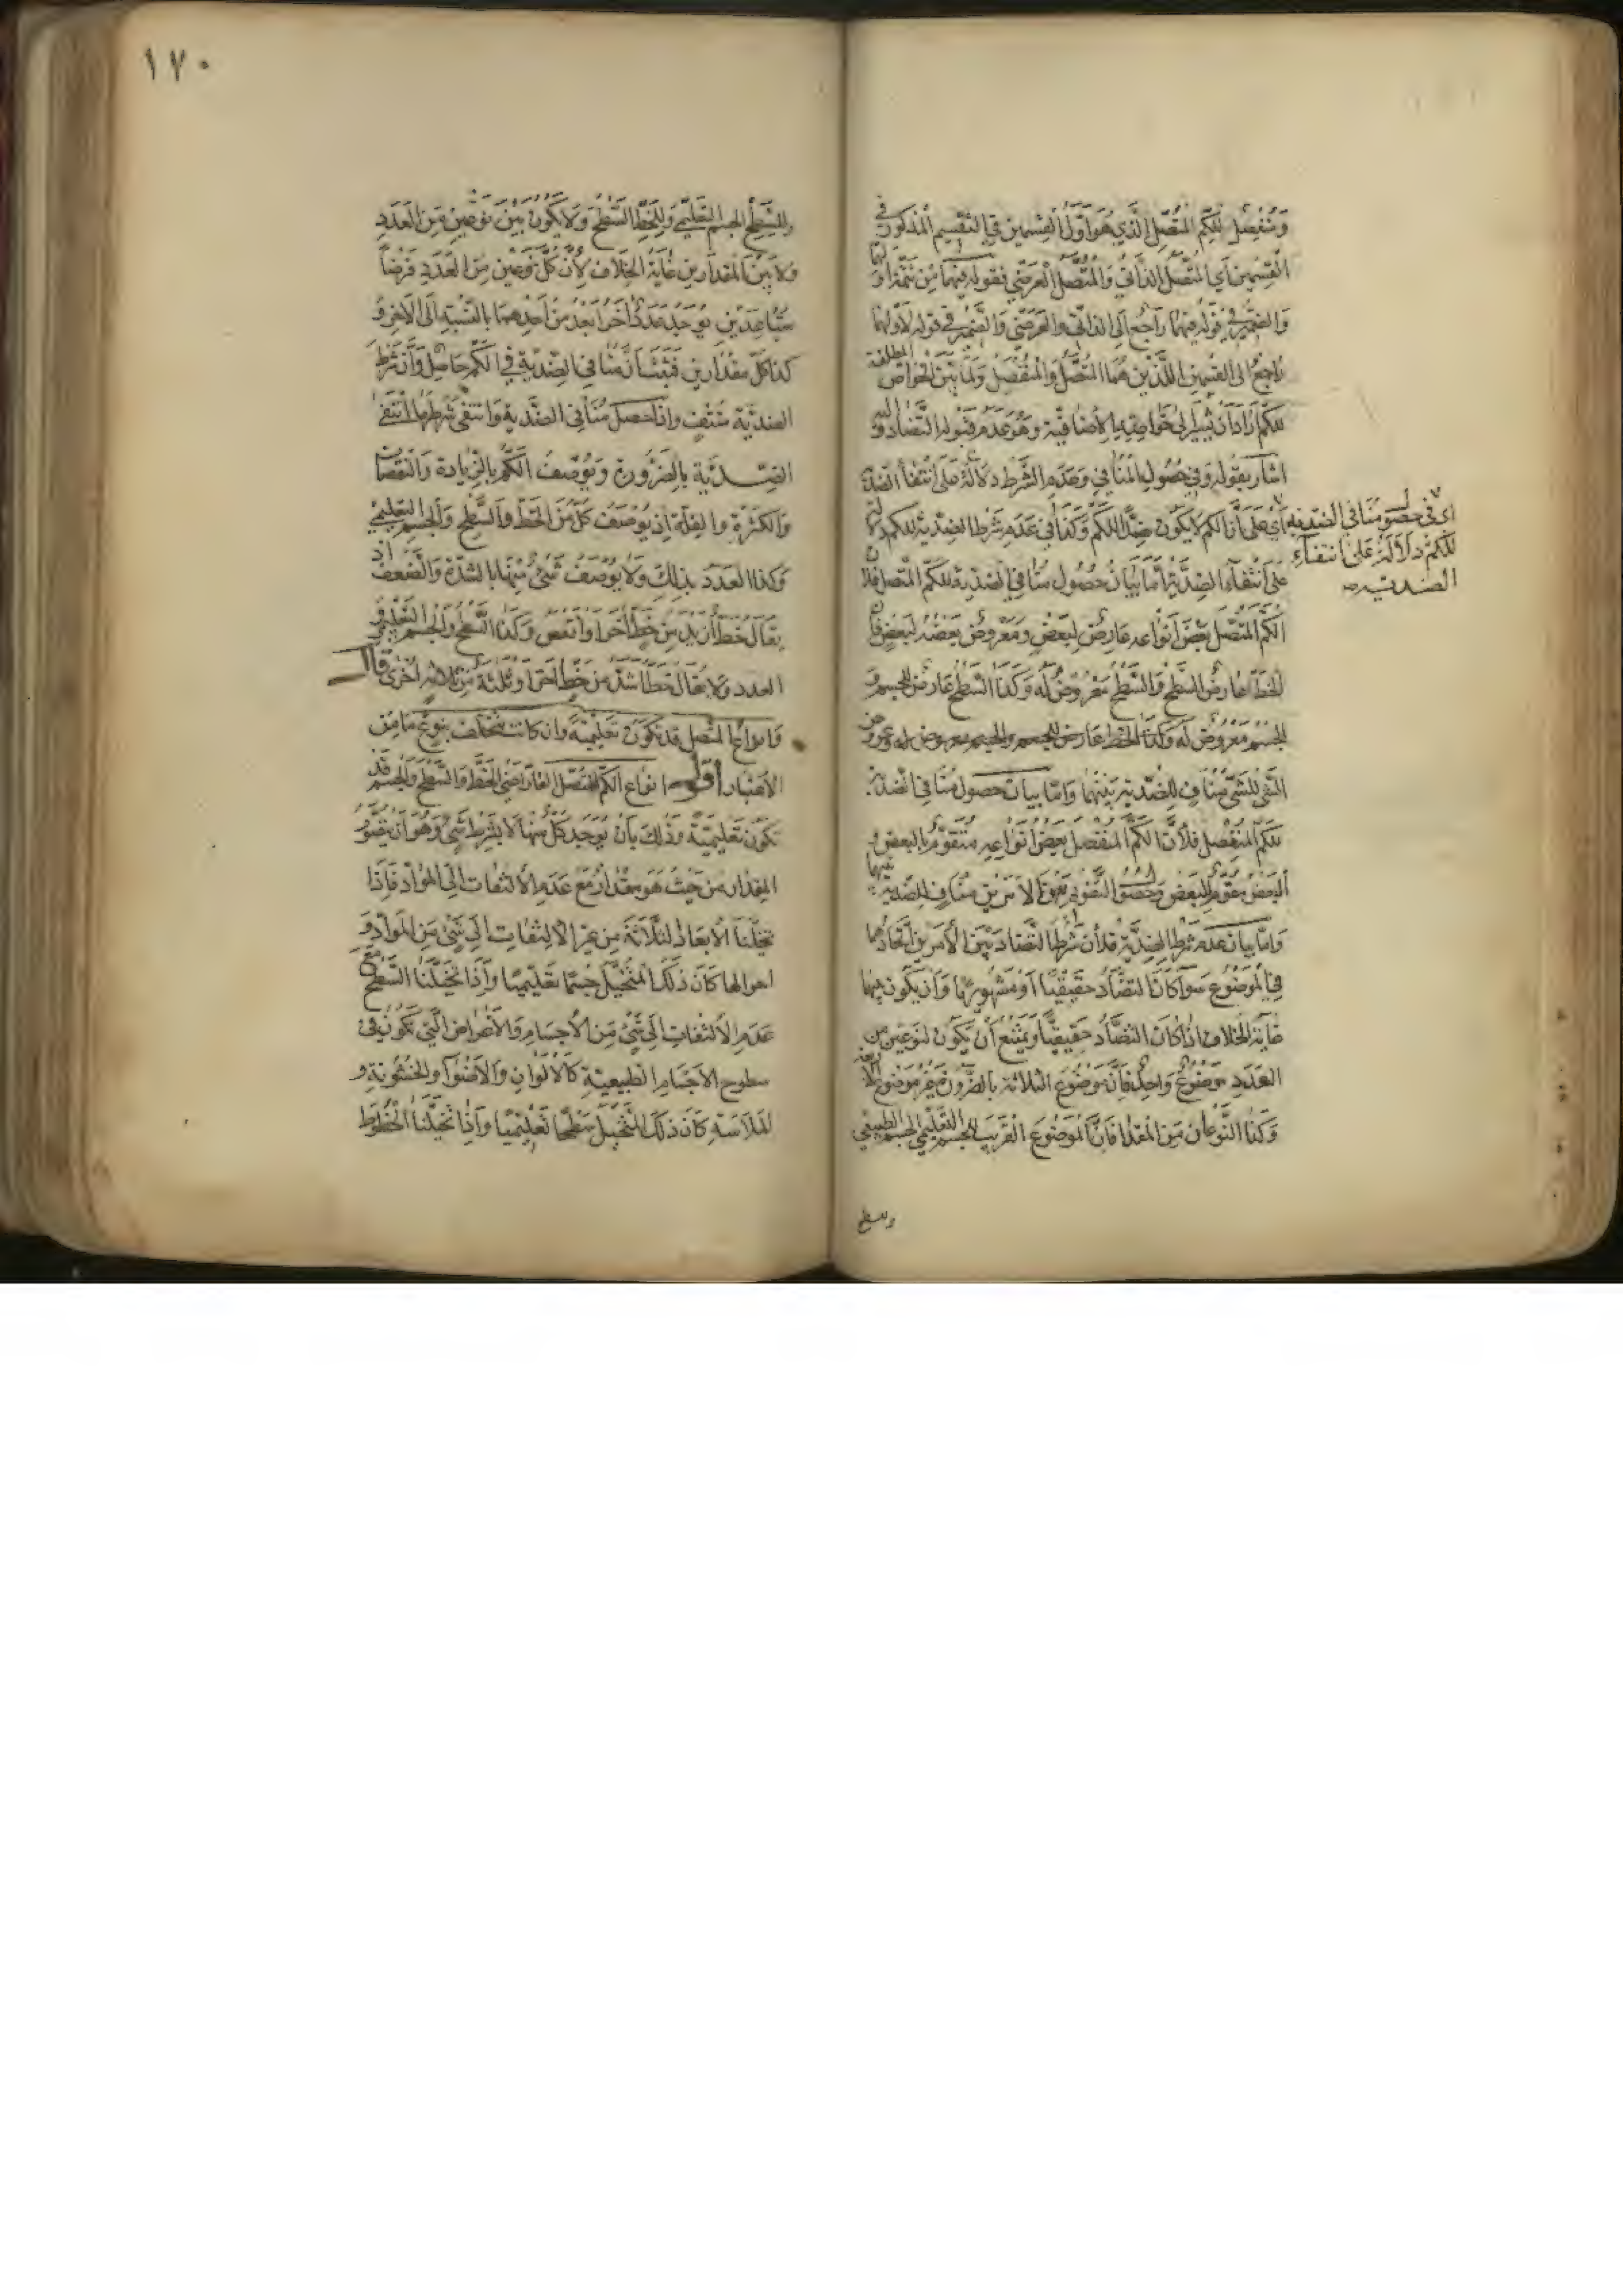 ومنفصل للكم المتصل الذي هو اول القسمين في التقسيم المذكور في
القسمين اي المتصل الذاتي والمتصل العرضي فقوله فيهما من تتمة اولهما
والضمير في قوله فيهما راجع الى الذاتي والعرضي والضمير في قوله لاولهما
راجع الى القسمين اللذين هما المتصل والمنفصل ولما بين الخواص المطلقة
للكم اراد ان يشير الى خواصه الاضافية وهو عدم قبوله التضاد واليه
اشار بقوله وفي حصول المنافي وعدم الشرط دلالة على انتفاء الضدية
اي على ان الكم لا يكون ضدا للكم وكذا في عدم شرط الضدية للكم دلالة
على انتفاء الضدية اما بيان حصول منافي الضدية للكم المتصل فلان
الكم المتصل بعض انواعه عارض لبعض ومعروض بعضه لبعض فان
الخط عارض للسطح والسطح معروض له وكذا السطح عارض للجسم و
الجسم معروض له وكذا الخط عارض للجسم والجسم معروض له وعروض
الشئ للشئ مناف للضدية بينهما واما بيان حصول منافي الضدية
للكم المنفصل فلان الكم المنفصل بعض انواعه متقوم بالبعض و
البعض مقوم للبعض وحصول التقويم بين الامرين مناف للضدية بينهما
واما بيان عدم شرط الضدية فلان شرط التضاد بين الامرين اتحادهما
في الموضوع سوآ كان التضاد حقيقيا او مشهوريا وان يكون بينهما
غاية الخلاف اذا كان التضاد حقيقيا ويمتنع ان يكون لنوعين من
العدد موضوع واحد فانه موضوع الثلاثة بالضرورة غير موضوع الاربعة
وكذا النوعان من المقدار فان الموضوع القريب للجسم التعليمي الجسم الطبيعي
وللسطح
اي في حصول منافي الضدية
للكم دلالة على انتفآء
الضدية صح
١٧٠
وللسطح الجسم التعليمي وللخط السطح ولا يكون بين نوعين من العدد
ولا بين المقدارين غاية الخلاف لان كل نوعين من العدد فرضا
متباعدين يوجد عدد اخر ابعد من احدهما بالنسبة الى الاخر و
كذا كل مقدارين فثبت ان منافي الضدية في الكم حاصل وان شرط
الضدية منتف واذا حصل منافي الضدية وانتفى شرطها انتفى
الضدية بالضرورة ويوصف الكم بالزيادة والنقصان
والكثرة والقلة اذ يوصف كل من الخط والسطح والجسم التعليمي
وكذا العدد بذلك ولا يوصف شئ منها بالشدة والضعف اذ
يقال خط ازيد من خط اخر او انقص وكذا السطح والجسم التعليمي و
العدد ولا يقال خط اشد من خط اخر او ثلثة من ثلاثة اخرى قال
وانواع المتصل قد تكون تعليمية وان كانت تختلف بنوع ما من
الاعتبار اقول انواع الكم المتصل القار اعني الخط والسطح والجسم قد
تكون تعليمية وذلك بان يوجد كل منها لا بشرط شئ وهو ان يتصور
المقدار من حيث هو مقدار مع عدم الالتفات الى المواد فاذا
تخيلنا الابعاد الثلاثة من غير الالتفات الى شئ من المواد و
احوالها كان ذلك المتخيل جسما تعليميا واذا تخيلنا السطح مع
عدم الالتفات الى شئ من الاجسام والاعراض التي تكون في
سطوح الاجسام الطبيعية كالالوان والاضوآ والخشونة و
الملاسة كان ذلك المتخيل سطحا تعليميا واذا تخيلنا الخطوط